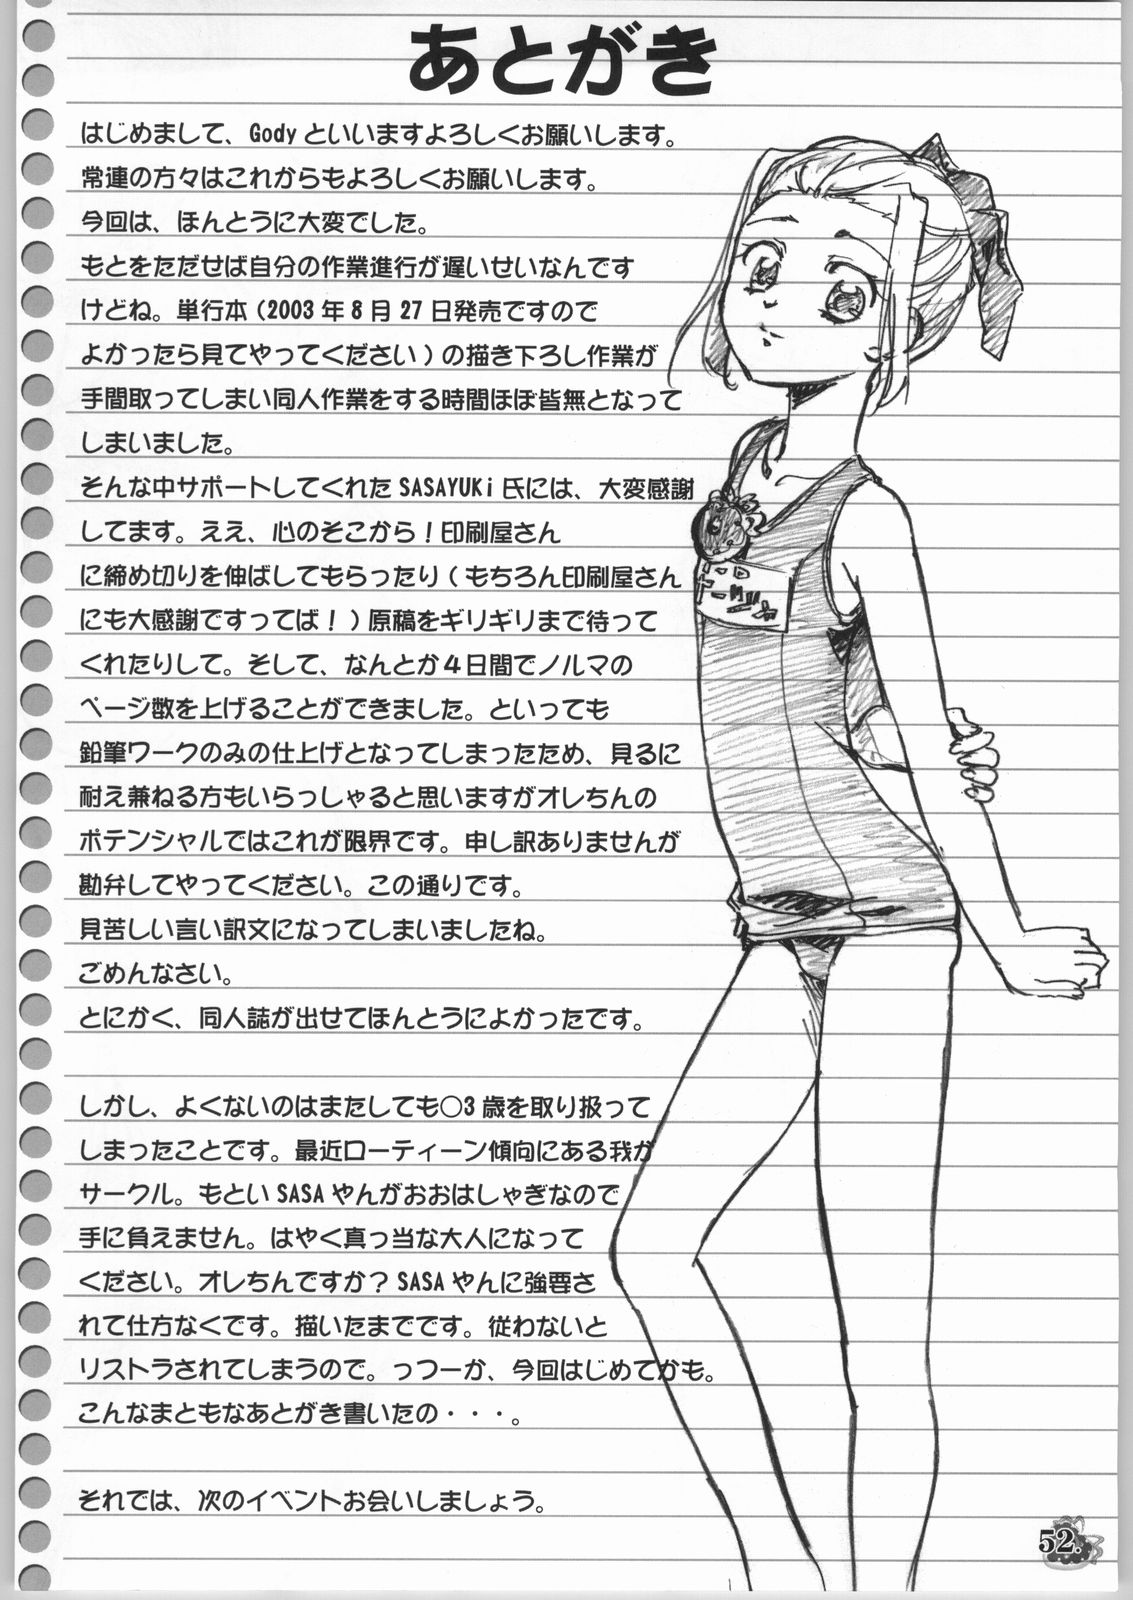 あとがき
はじめまして、Godyといいますよろしくお願いします。
常連の方々はこれからもよろしくお願いします。
今回は、ほんとうに大変でした。
もとをただせば自分の作業進行が遅いせいなんです
けどね。単行本(2003年8月27日発売ですので
よかったら見てやってください)の描き下ろし作業が
手間取ってしまい同人作業をする時間ほぼ皆無となって
しまいました。
そんな中サポートしてくれたSASAYUKi氏には、大変感謝
してます。ええ、心のそこから!印刷屋さん
に締め切りを伸ばしてもらったり(もちろん印刷屋さん
にも大感謝ですってば!)原稿をギリギリまで待って
くれたりして。そして、なんとか4日間でノルマの
ページ数を上げることができました。といっても
鉛筆ワークのみの仕上げとなってしまったため、見るに
耐え兼ねる方もいらっしゃると思いますがオレちんの
ポテンシャルではこれが限界です。申し訳ありませんが
勘弁してやってください。この通りです。
見苦しい言い訳文になってしまいましたね。
ごめんなさい。
とにかく、同人誌が出せてほんとうによかったです。
しかし、よくないのはまたしても○3歳を取り扱って
しまったことです。最近ローティーン傾向にある我が
サークル。もといSASAやんがおおはしゃぎなので
手に負えません。はやく真っ当な大人になって
ください。オレちんですか?SASAやんに強要さ
れて仕方なくです。描いたまでです。従わないと
リストラされてしまうので。っつーか、今回はじめてかも。
こんなまともなあとがき書いたの・・・。
それでは、次のイベントお会いしましょう。
52.